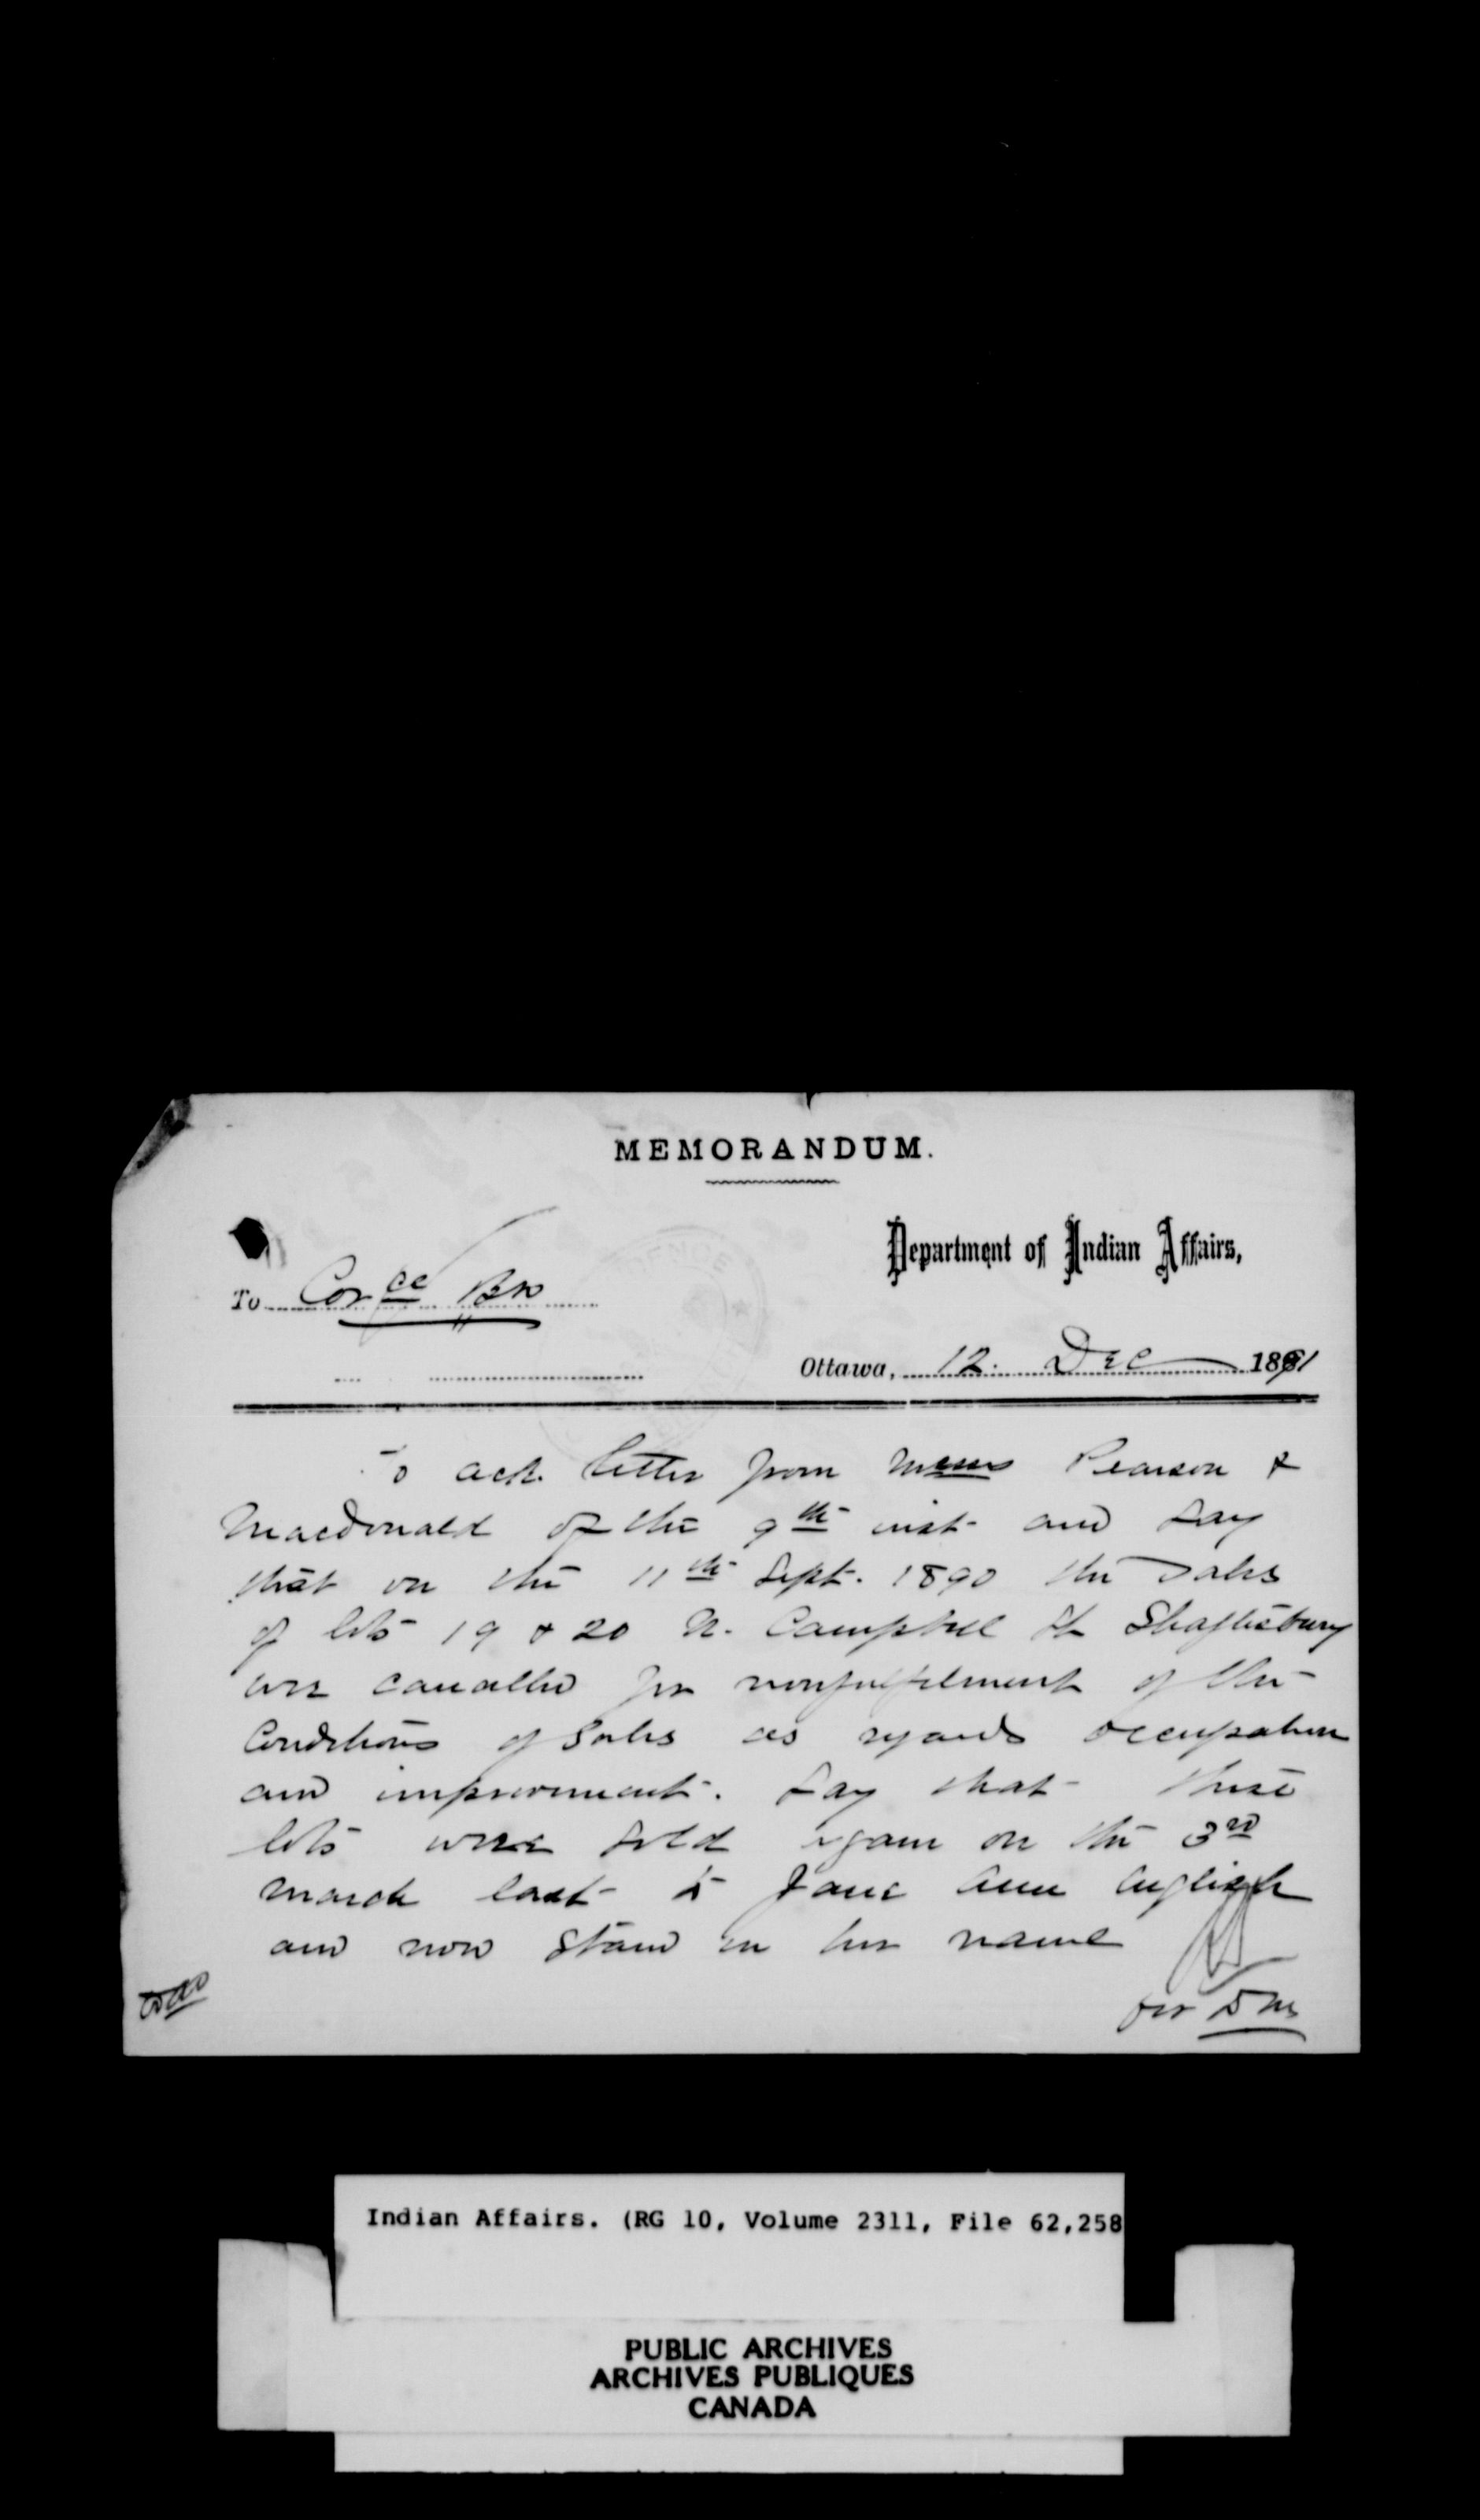 MEMORANDUM.
Department of Indian Affairs,
To Corce Br
Ottawa, 12. Dec 1891
To ack. letter from Messrs Pearson &
Macdonald of the 9th inst and say
that on the 11th Sept. 1890 the Sales
of lots 19 & 20 N. Campbell St Shaftesbury
were cancelled for nonfulfilment of the
Conditions of Sales as regards occupation
and improvement. Say that these
lots were sold again on the 3rd
March last to Jane Ann English
and now stand in her name
for
Indian Affairs. (RG 10, Volume 2311, File 62,258
PUBLIC ARCHIVES
ARCHIVES PUBLIQUES
CANADA